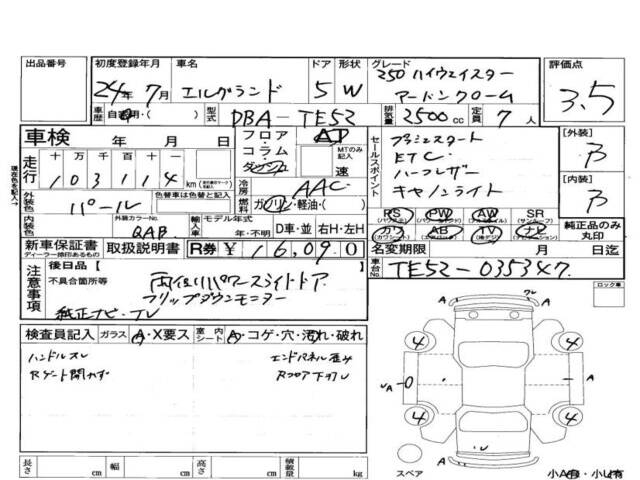 出品番号 初度登録年月 車名 ドア 形状 グレード 評価点
24年7月 エルグランド 5 W 350ハイウェイスター アーバンクローム 3.5
車歴 自家用・( ) 型式 DBA-TE52 排気量 3500cc 定員 7人
車検 年 月 日
フロア・コラム・ダッシュ AT MTのみ記入 速
走行 十万千百十 103114 km
冷房 AAC
燃料 ガソリン・軽油・( )
セールスポイント
プッシュスタート
ETC
ハーフレザー
キセノンライト
[外装] B
[内装] B
外装色 パール 色替車は色替前色
内装色 外装カラーNo. QAB 輸入車 モデル年式 年・不明 D車・並 右H・左H
PS PW AW SR
カワ AB TV ナビ
純正品のみ丸印
新車保証書 取扱説明書 R券 ¥16,090
ディーラー捺印あるもの
名変期限 月 日迄
車台No. TE52-035347
注意事項 後日品【 】
不具合箇所等 両側パワースライドドア
フリップダウンモニター
純正ナビ・TV
ロック車
検査員記入 ガラス A・X要ス 室内シート A・コゲ・穴・汚れ・破れ
ハンドルスレ エンドパネル歪み
Rゲート開かず Rフロア下サレ
4 4
4 4
A A A A
スペア 小A有・小U有
長さ cm 幅 cm 高さ cm 積載量 kg
現在色を記入→